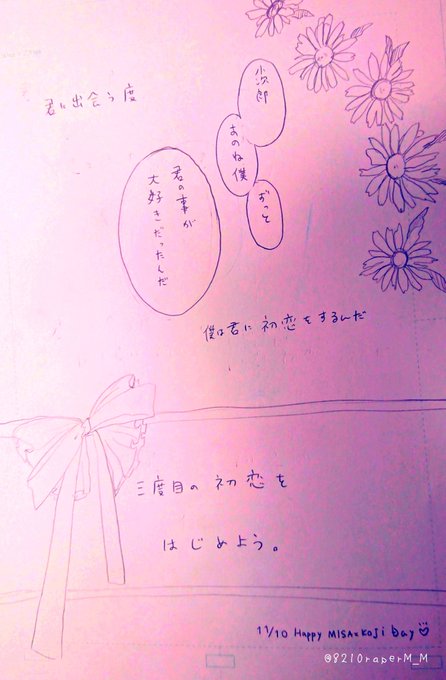 君に出会う度
小次郎
あのね僕
ずっと
君の事が
大好きだったんだ
僕は君に初恋をするんだ
三度目の初恋を
はじめよう。
11/10 Happy MISA×KOJI Day
@8210raperM_M